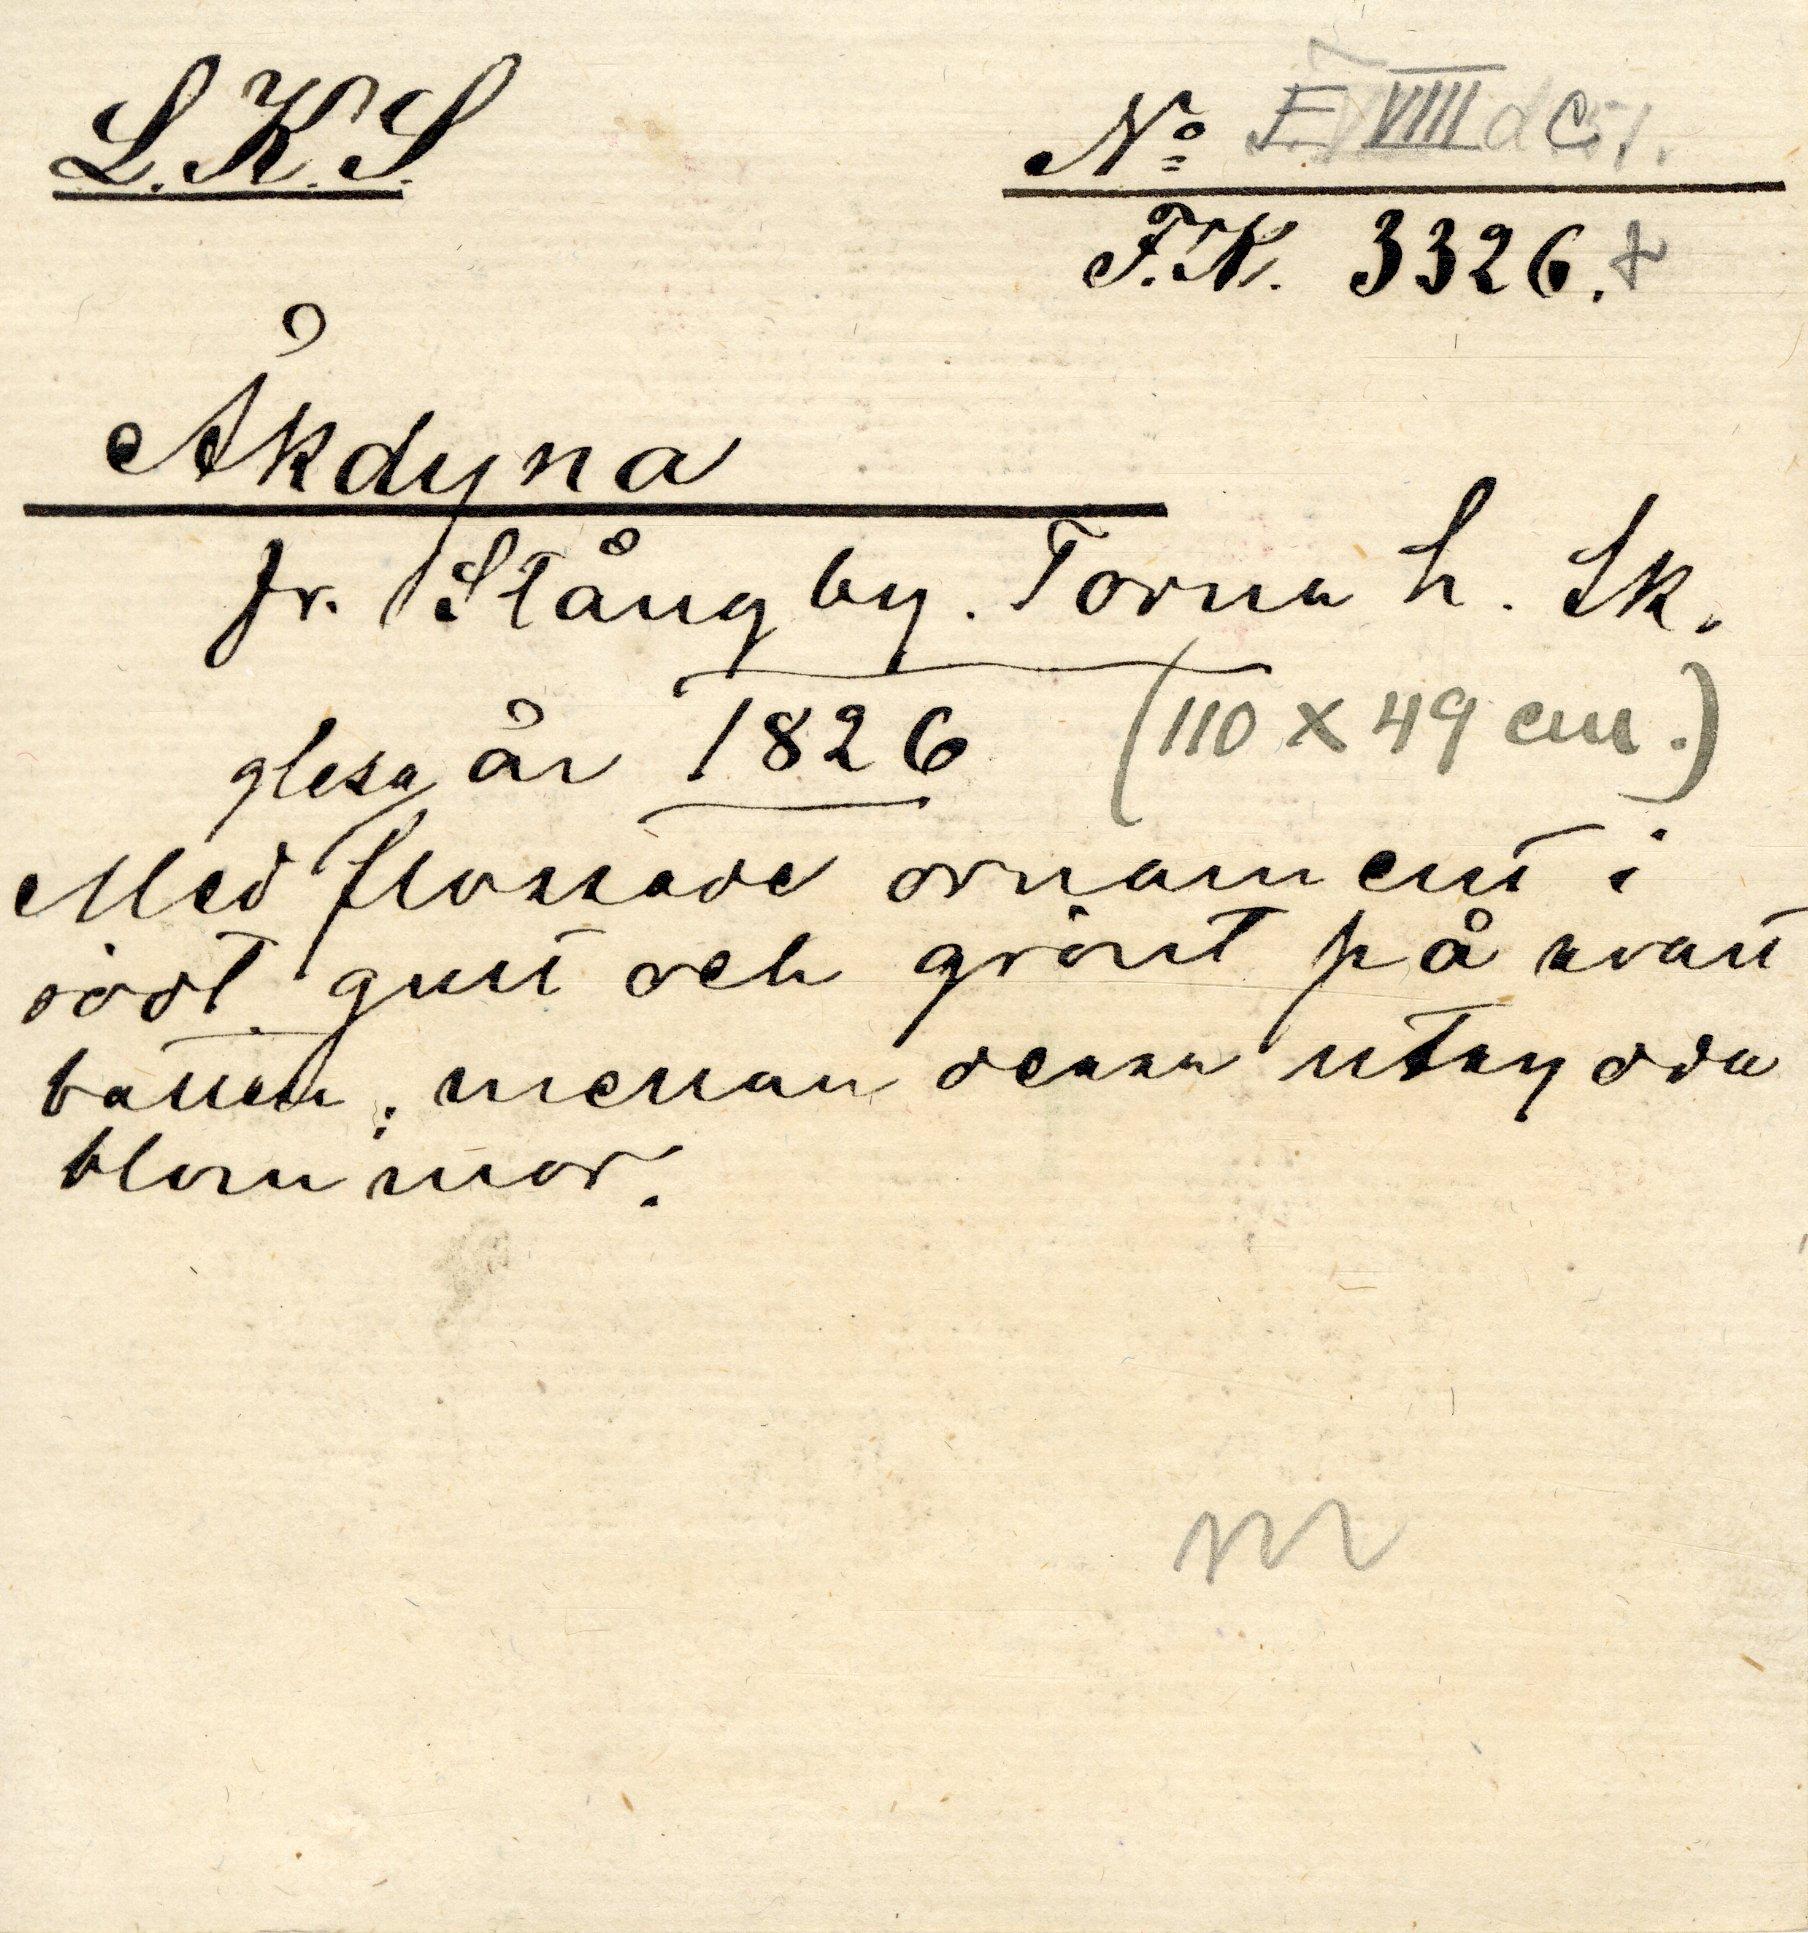 L.K.S. No E VIII d c.
F.K. 3326.
Åkdyna
fr. Stångby. Torna h. Sk.
glesa år 1826 (110 x 49 cm.)
Med flossade ornament i
rödt gult och grönt på svart
botten; mellan dessa utsydda
blommor.